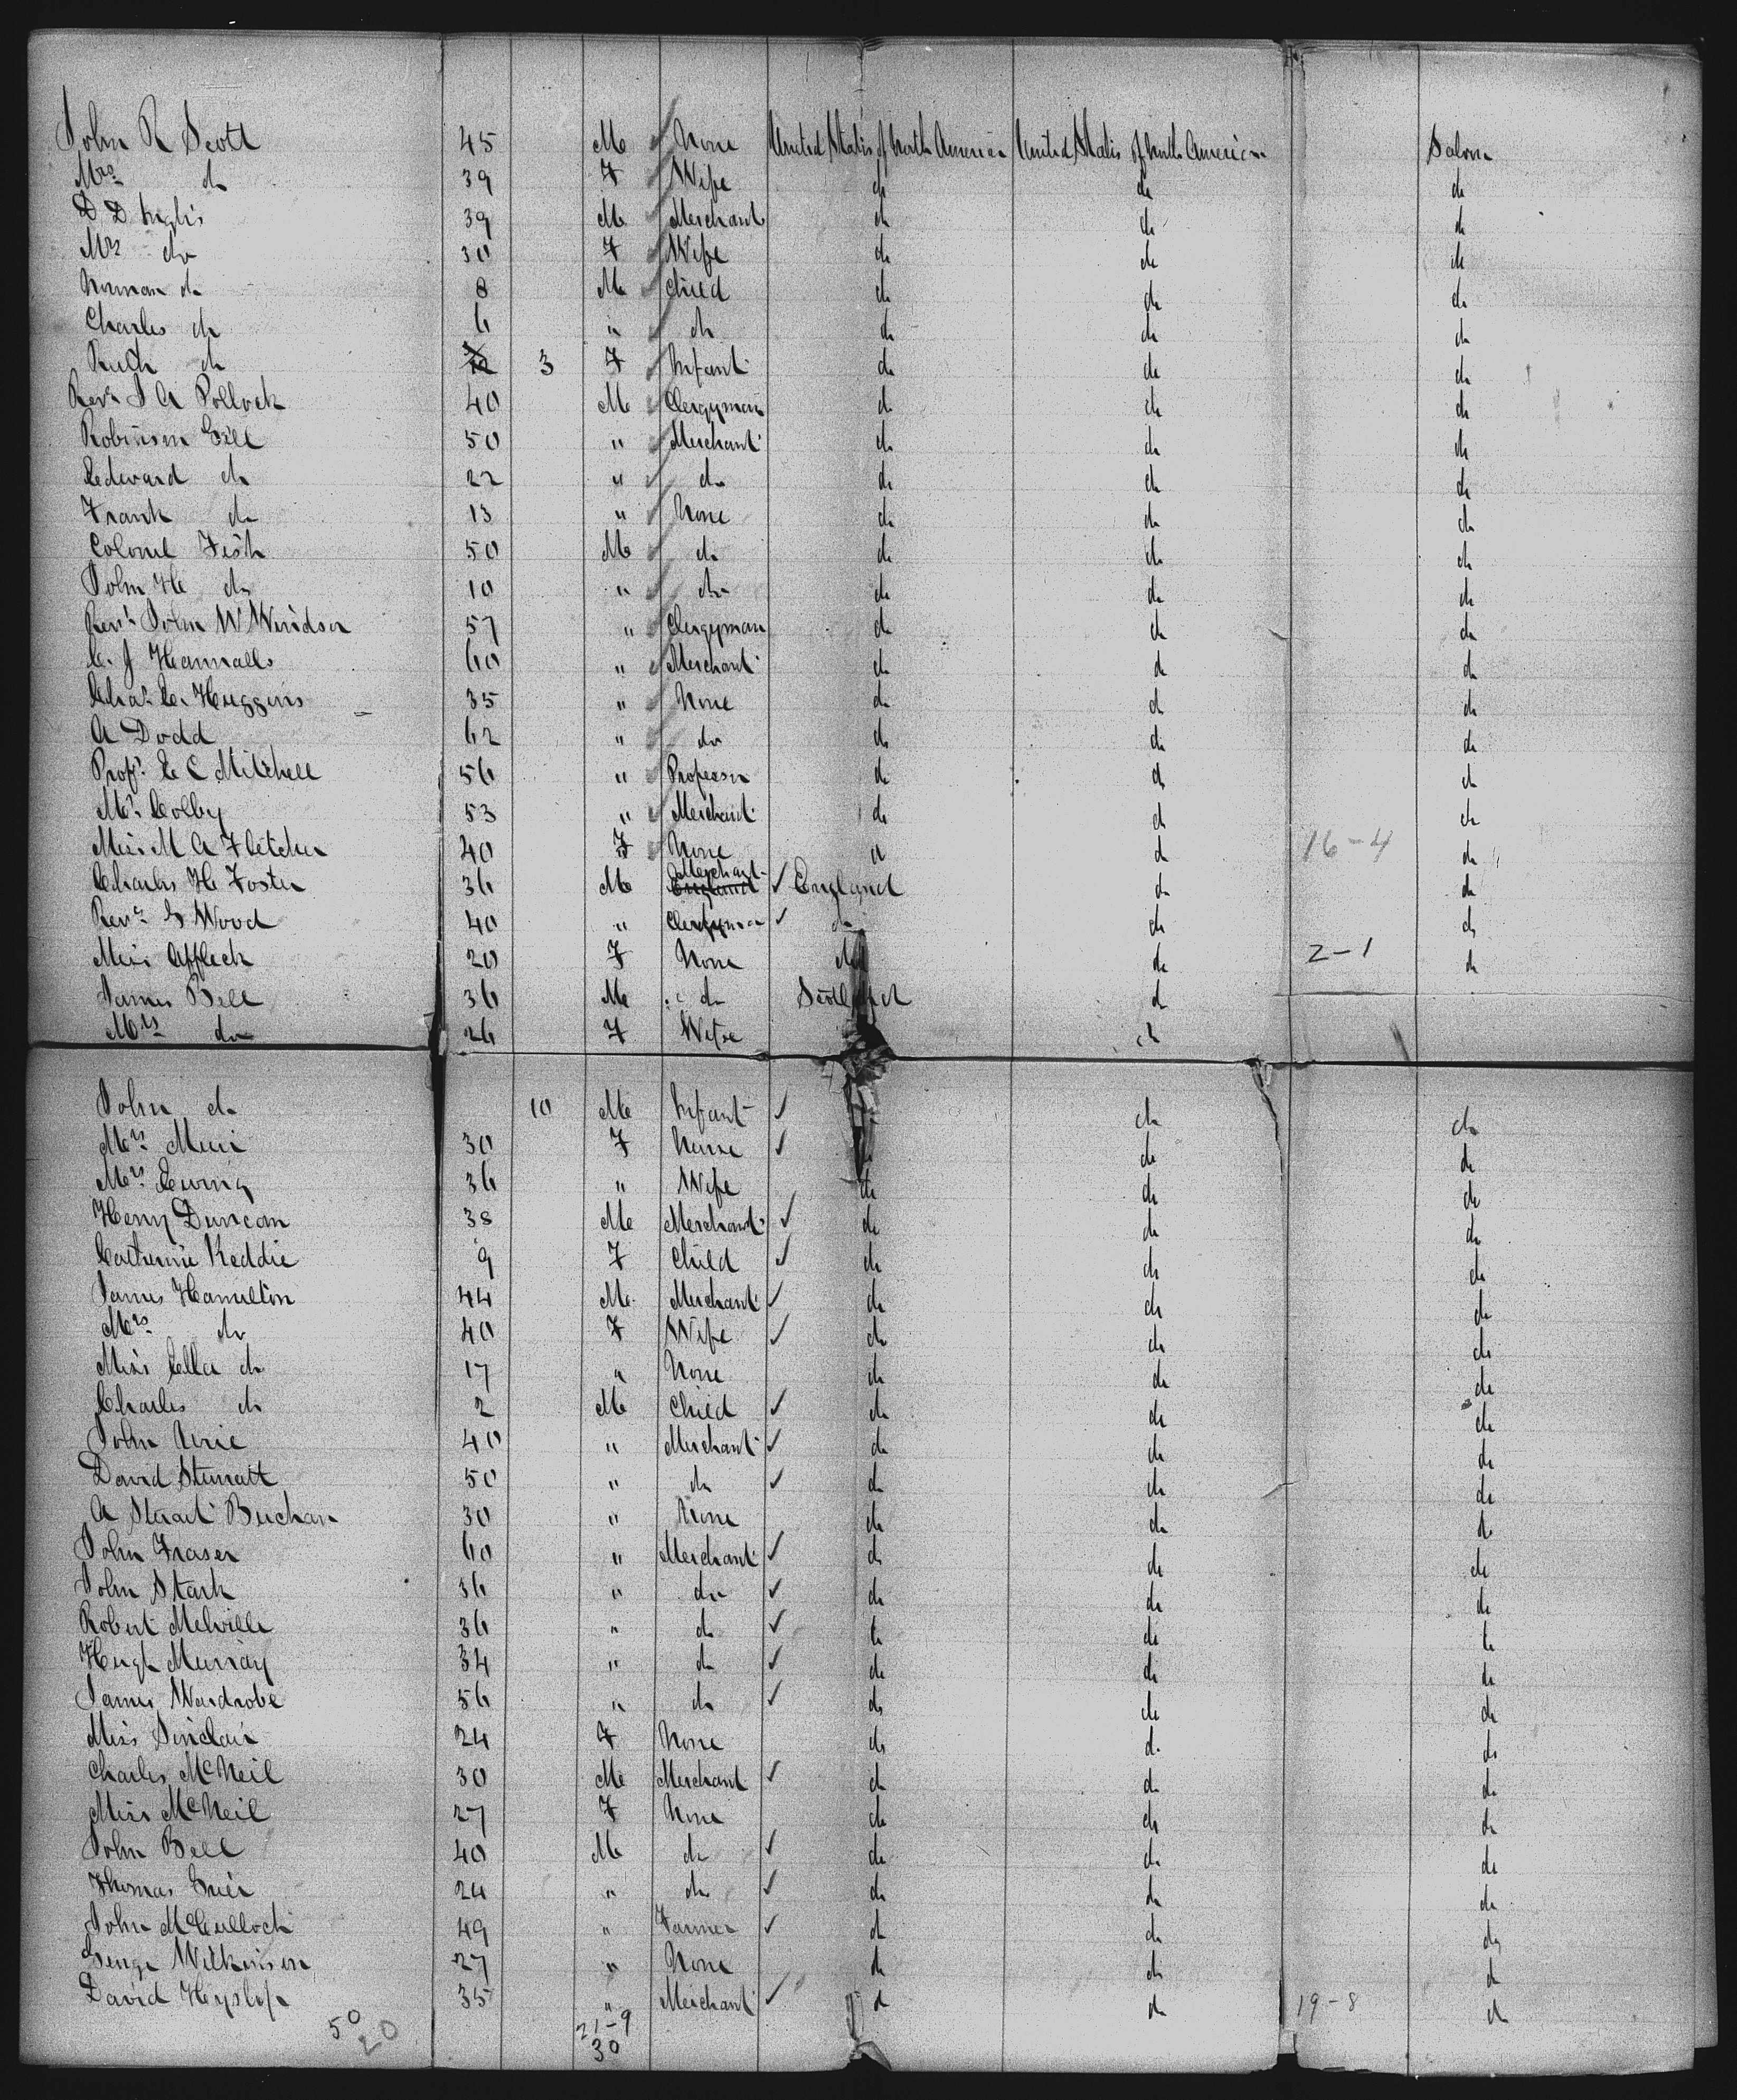 John R Scott 45 M None United States of North America United States of North America Saloon
Mrs do 39 F Wife do do do
D D Inglis 39 M Merchant do do do
Mrs do 30 F Wife do do do
Norman do 8 M Child do do do
Charles do 6 " do do do do
Ruth do 3 F Infant do do do
Revd J A Pollock 40 M Clergyman do do do
Robinson Gill 50 " Merchant do do do
Edward do 22 " do do do do
Frank do 13 " None do do do
Colonel Fish 50 M do do do do
John H do 10 " do do do do
Revd John W Windsor 57 " Clergyman do do do
60 " Merchant do do do
Chas E. Huggins 35 " None do do do
A Dodd 62 " do do do do
Profr E C Mitchell 56 " Professor do do do
Mr Colby 53 " Merchant do do do
Miss M A Fletcher 40 F None do do 16-4 do
Charles H Foster 36 M Merchant England do do
Revd G Wood 40 " Clergyman do do do
Miss Affleck 20 F None do do 2-1 do
James Bell 36 M do Scotland do
Mrs do 26 F Wife do
John do 10 M Infant do do
Mrs Muir 30 F Nurse do do do
Mrs Ewing 36 " Wife do do do
Henry Duncan 38 M Merchant do do do
Catherine Keddie 9 F Child do do do
James Hamilton 44 M Merchant do do do
Mrs do 40 F Wife do do do
Miss Ella do 17 " None do do do
Charles do 2 M Child do do do
John Urie 40 " Merchant do do do
David Sturratt 50 " do do do do
A Stuart Buchan 30 " None do do do
John Fraser 60 " Merchant do do do
John Stark 36 " do do do do
Robert Melville 36 " do do do do
Hugh Murray 34 " do do do do
James Wardrobe 56 " do do do do
Miss Sinclair 24 F None do do do
Charles McNeil 30 M Merchant do do do
Miss McNeil 27 F None do do do
John Bell 40 M do do do do
Thomas Grier 24 " do do do do
John McCulloch 49 " Farmer do do do
George Wilkinson 27 " None do do do
David Heyslop 35 " Merchant do do 19-8 do
50 21-9
20 30